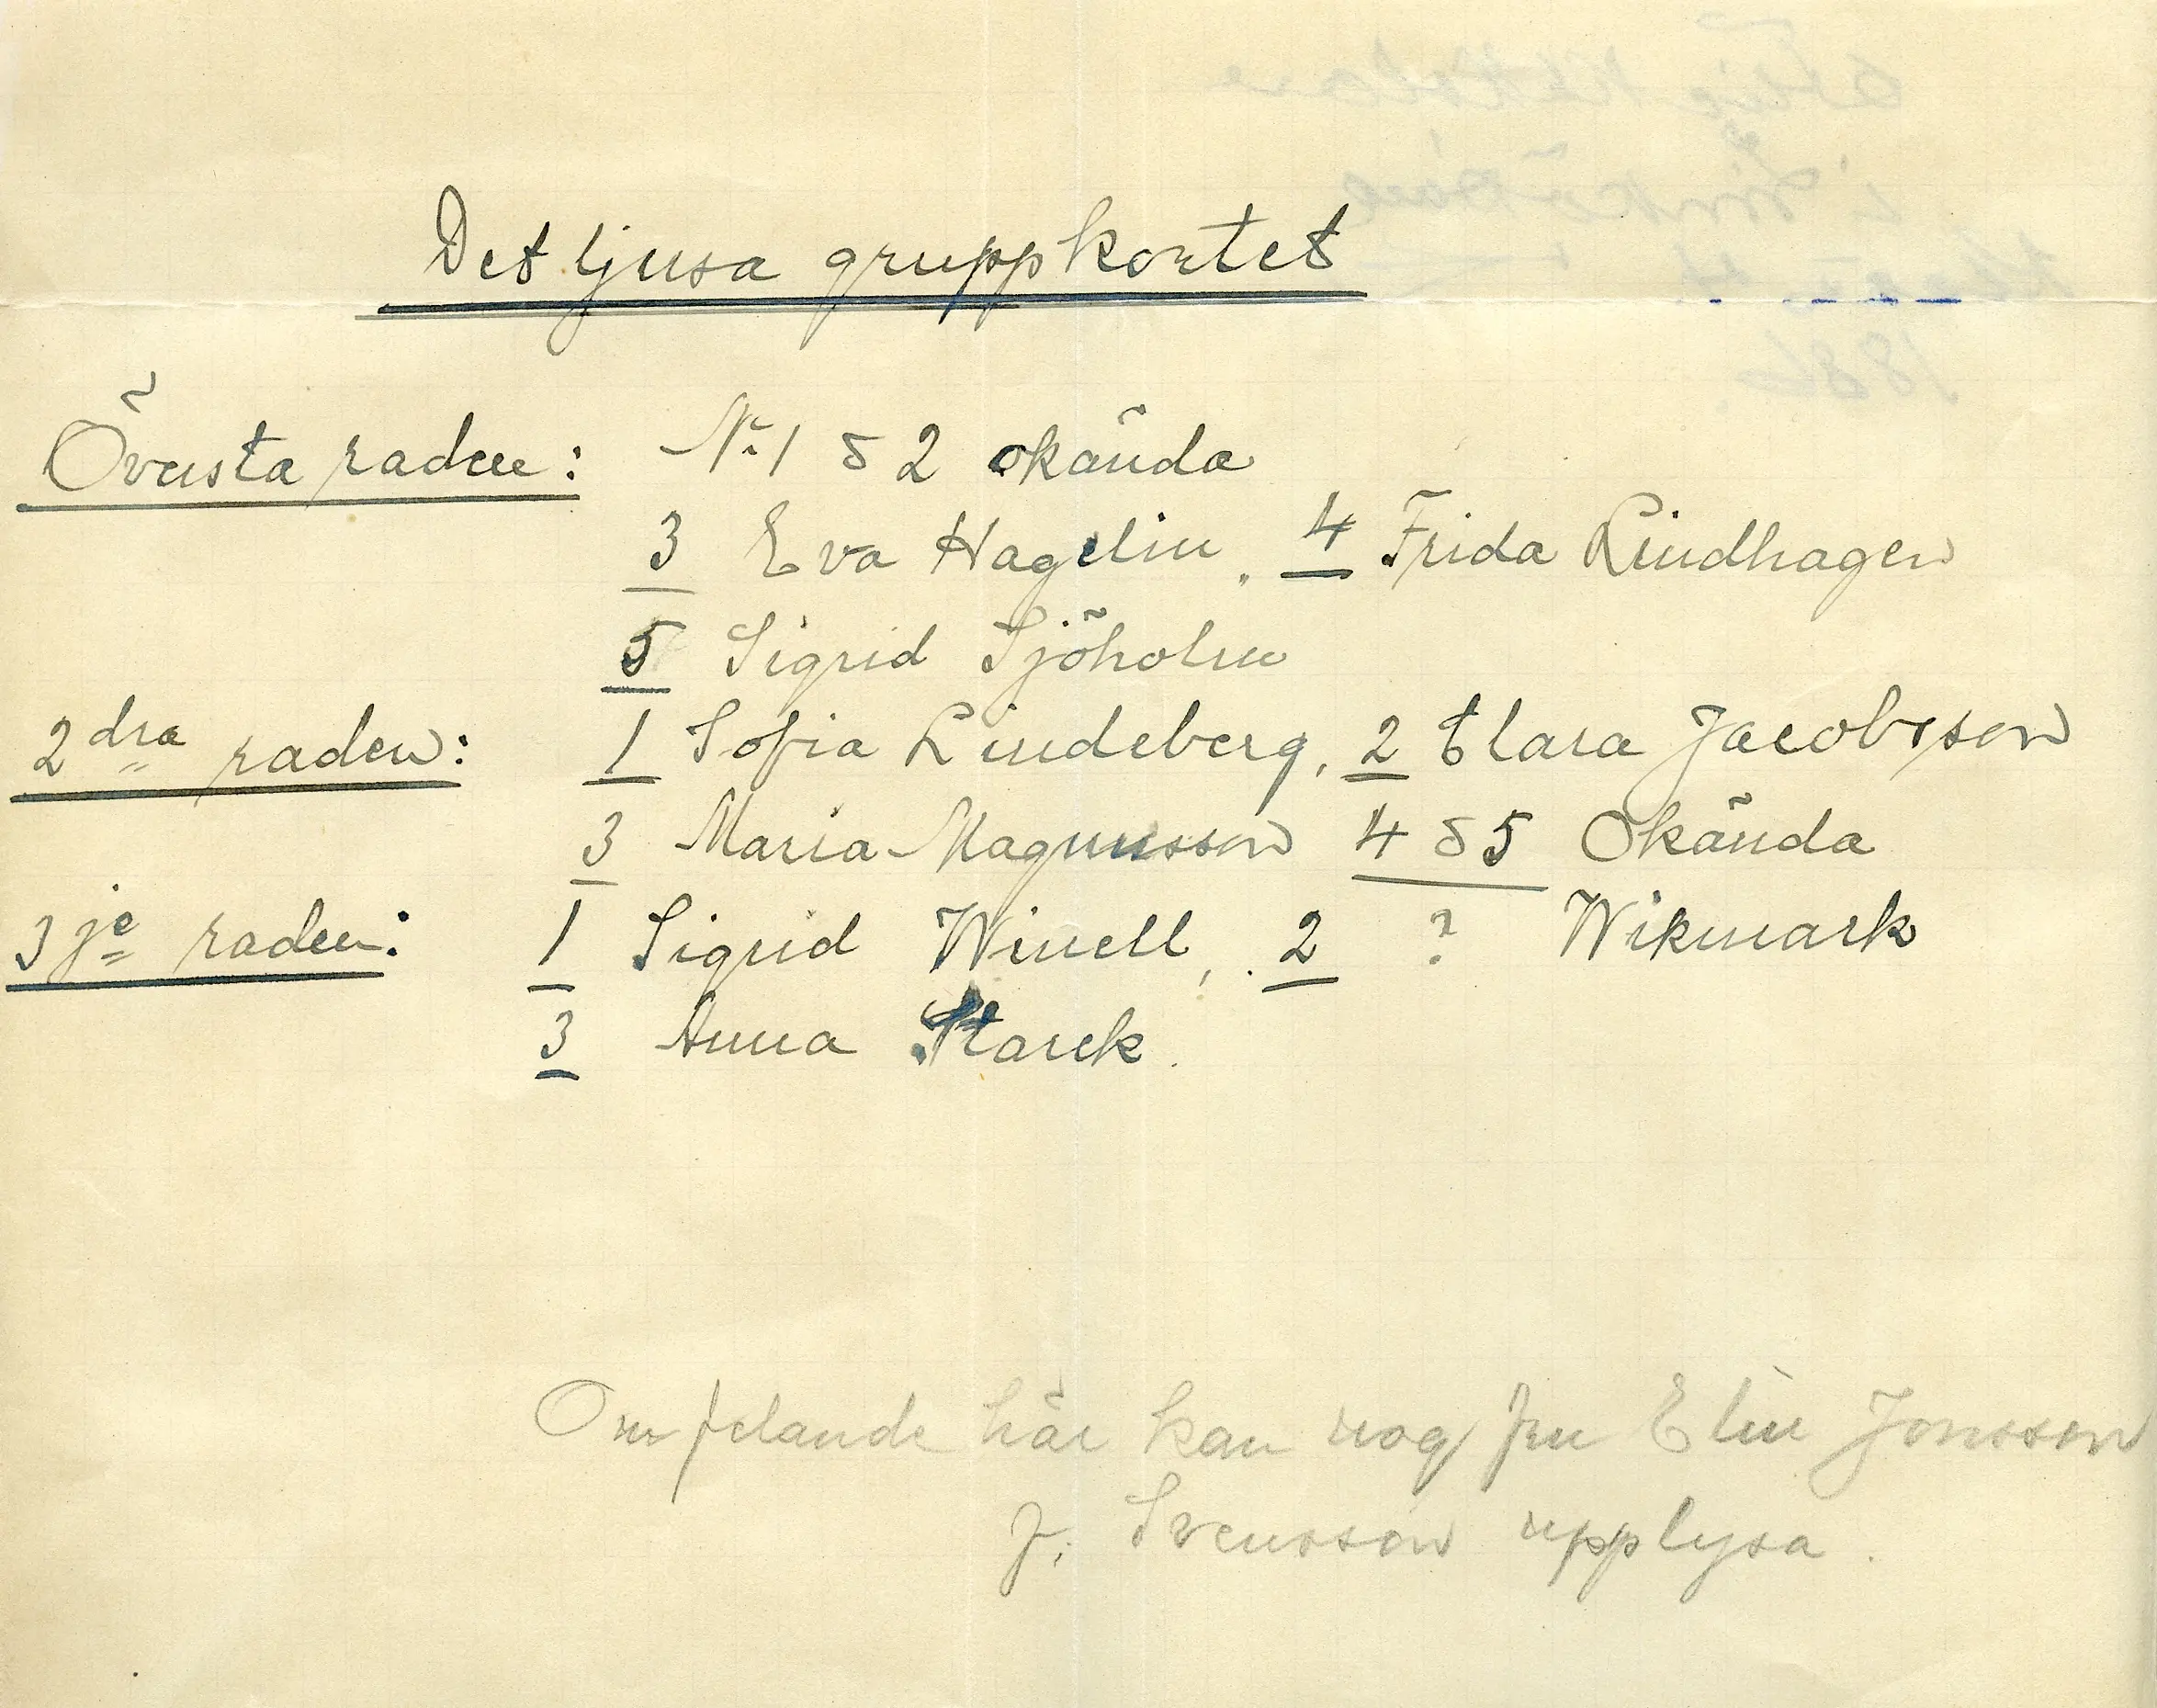 Det ljusa gruppkortet
Översta raden: No 1 o 2 okända
3 Eva Hagelin, 4 Frida Lindhagen
5 Sigrid Sjöholm
2dra raden: 1 Sofia Lindeberg, 2 Clara Jacobsson
3 Maria Magnusson 4 o 5 Okända
3je raden: 1 Sigrid Winell, 2 ? Wikmark
3 Anna Starck.
Om felande här kan nog fru Elin Jonsson
f. Svensson upplysa.
1886.